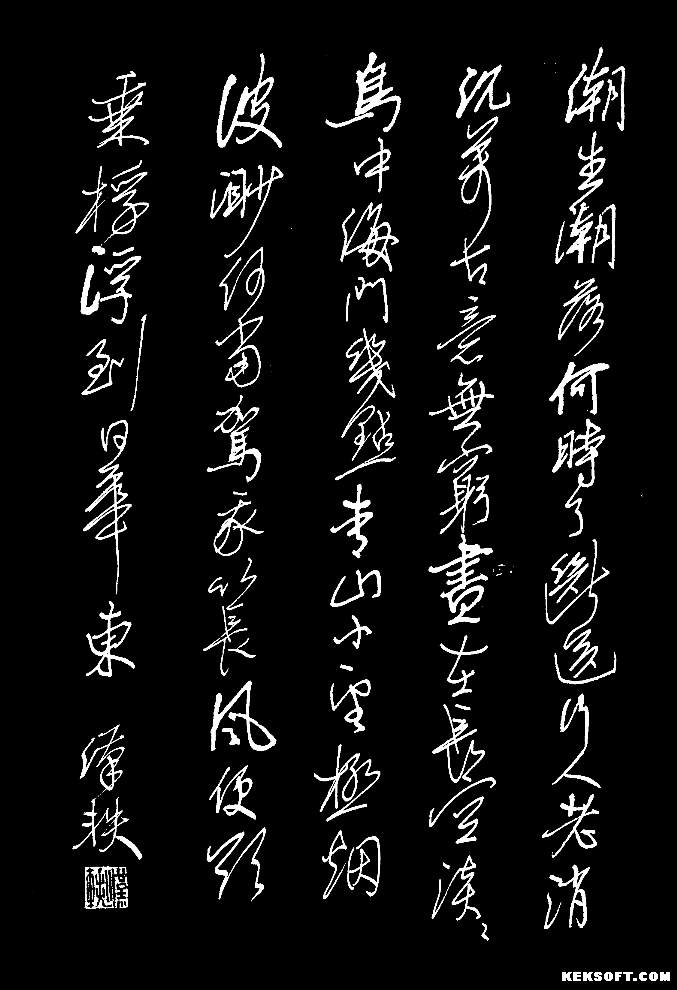 潮生潮落何時了斷送行人老消
沉萬古意無窮盡在長空淡々
鳥中海門幾點青山小望極烟
波渺何當駕我以長風便欲
乘桴浮到日華東 漢軼
KEKSOFT.COM